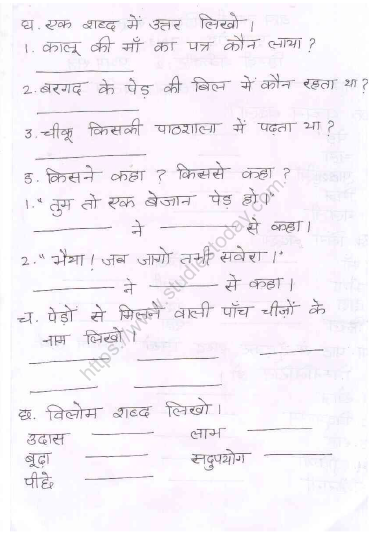 घ. एक शब्द में उत्तर लिखो।
1. कालू की माँ का पत्र कौन लाया?
2. बरगद के पेड़ की बिल में कौन रहता था?
3. चीकू किसकी पाठशाला में पढ़ता था?
ङ. किसने कहा? किससे कहा?
1. "तुम तो एक बेजान पेड़ हो।"
ने से कहा।
2. "भैया! जब जागो तभी सवेरा।"
ने से कहा।
च. पेड़ों से मिलने वाली पाँच चीज़ों के
नाम लिखो।
छ. विलोम शब्द लिखो।
उदास लाभ
बूढ़ा सदुपयोग
पीछे
https://www.studiestoday.com